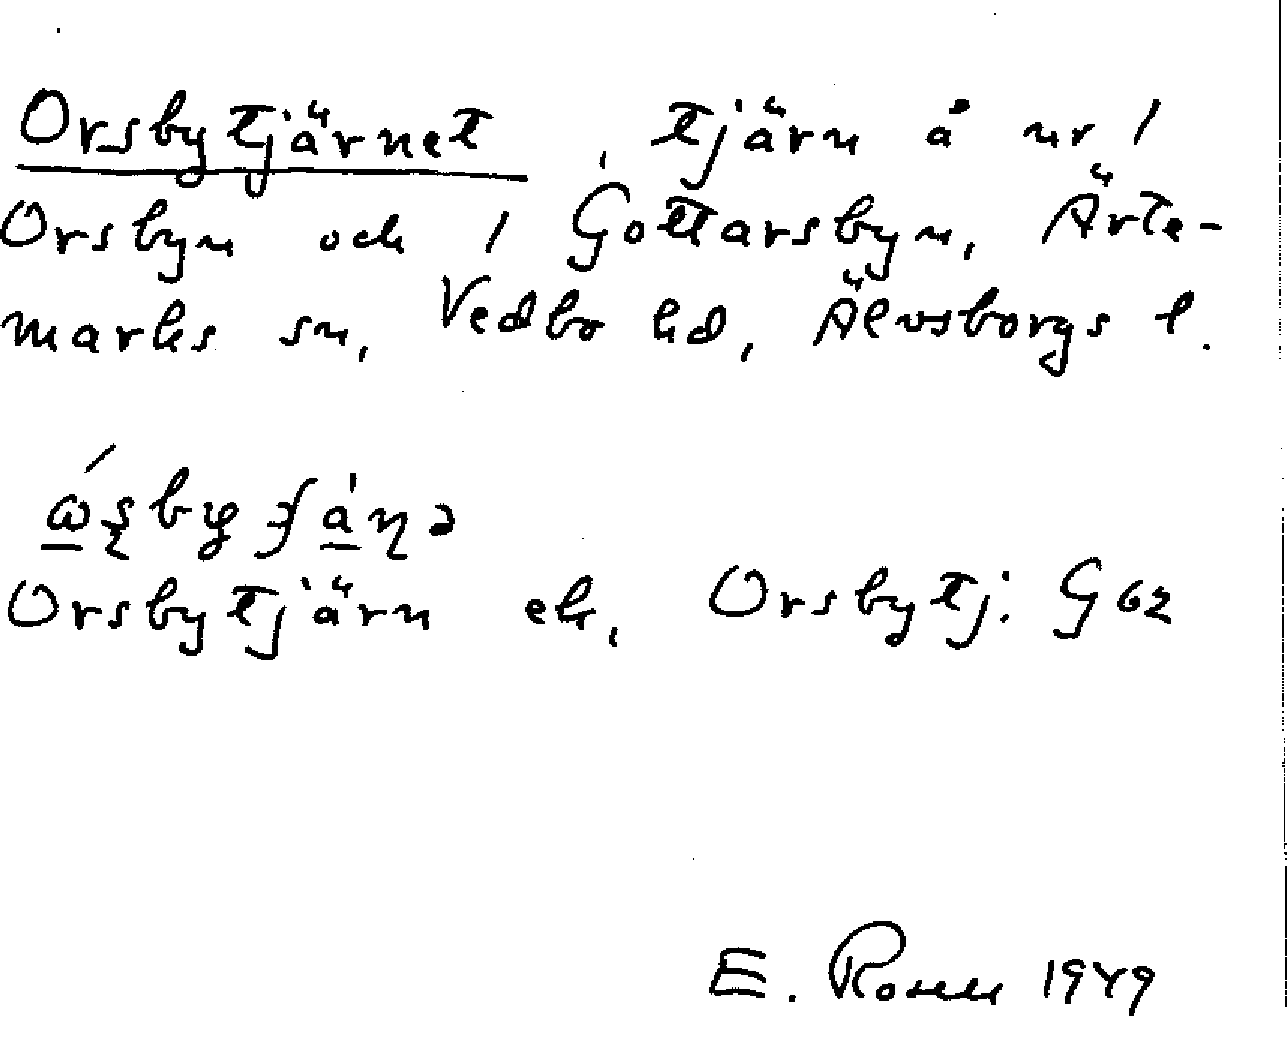 Orsbytjärnet, tjärn å nr 1
Orsbyn och 1 Gottarsbyn, Ärte-
marks sn, Vedbo hd, Älvsborgs l.
Orsbytjärn ek, Orsbytj: G62
E. Rosell 1949